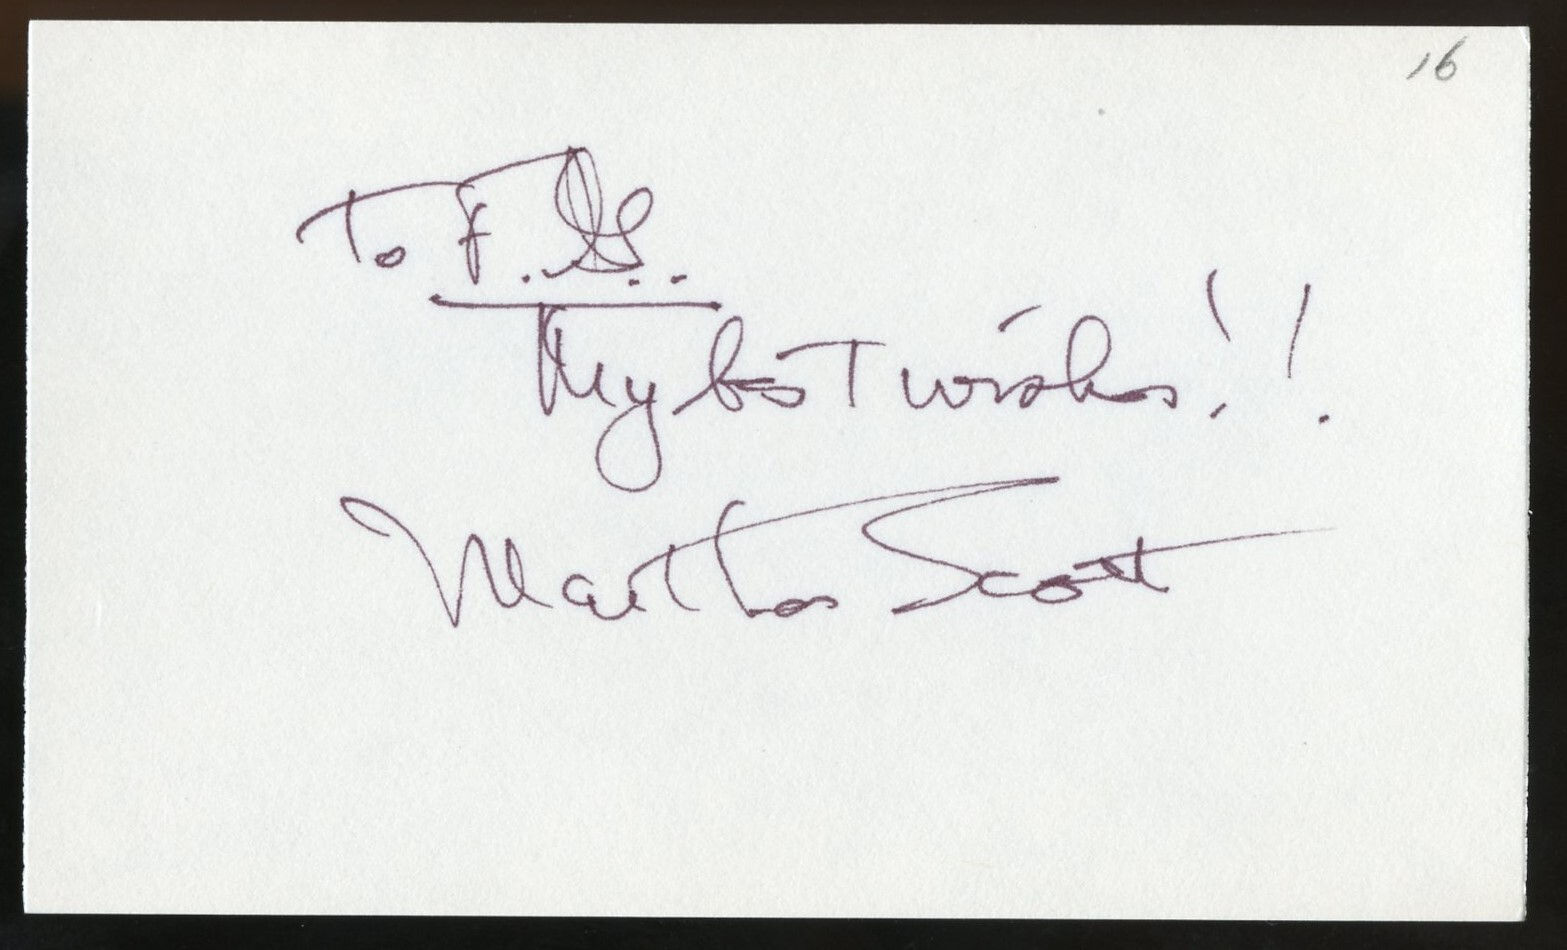 16
To F.G..
My best wishes!!
Martha Scott